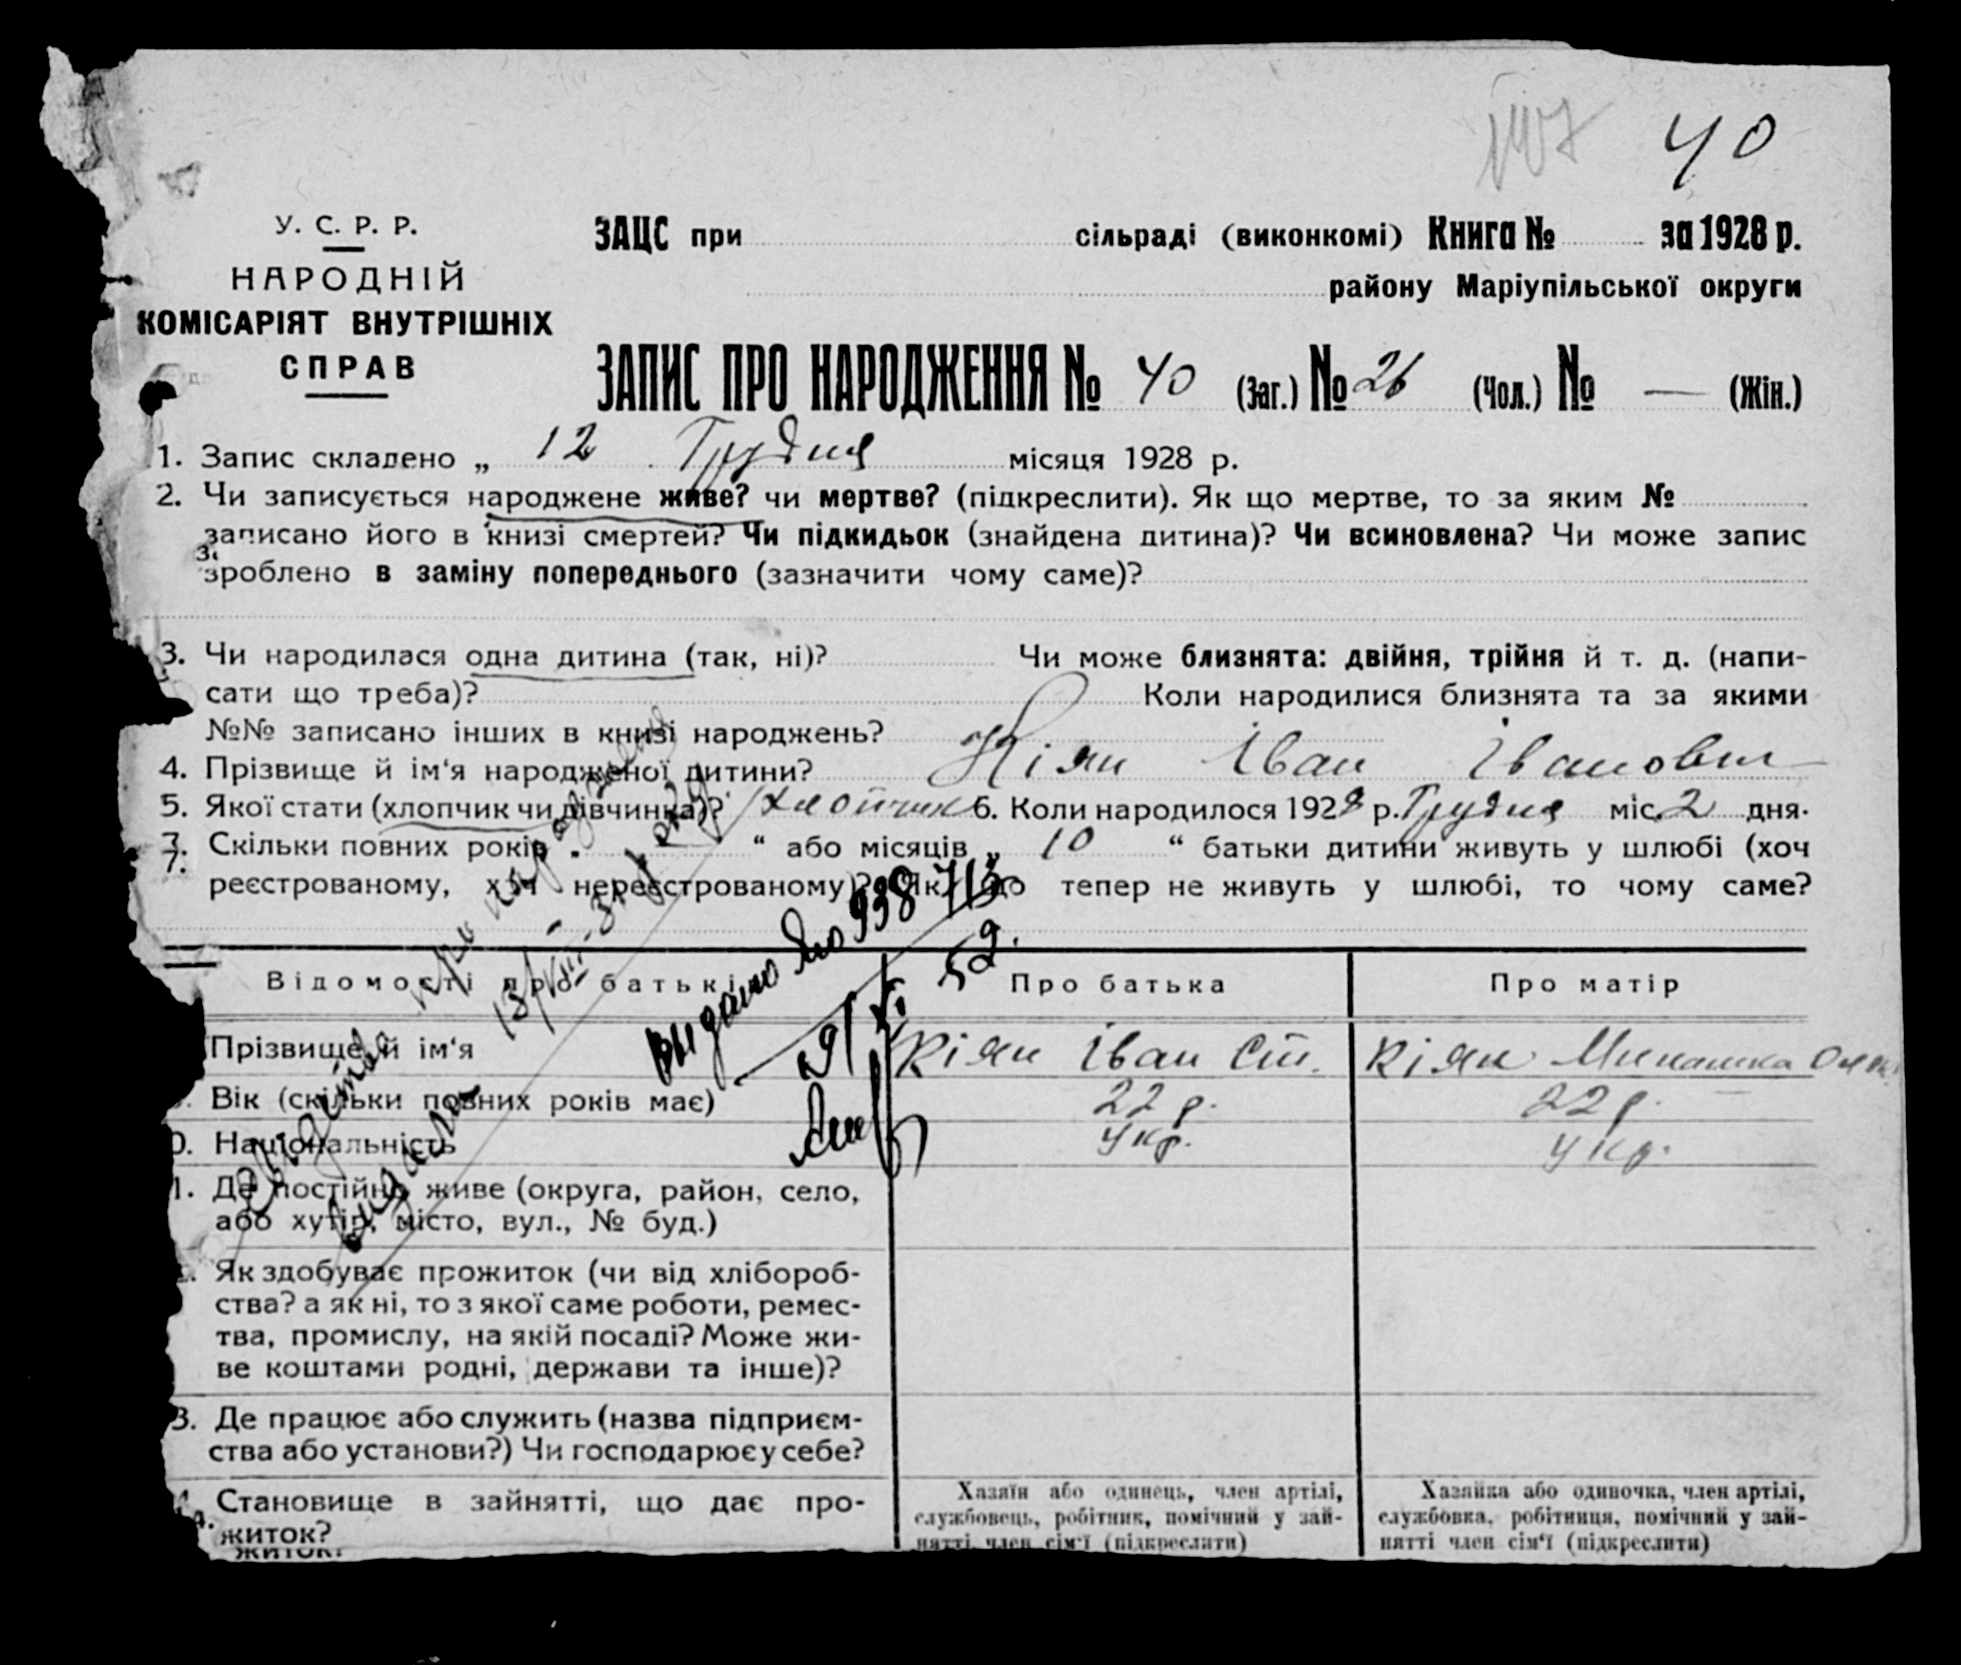 40
У. С. Р. Р.
НАРОДНІЙ
КОМІСАРІЯТ ВНУТРІШНІХ
СПРАВ
ЗАЦС при сільраді (виконкомі) Книга № за 1928 р.
району Маріупільської округи
ЗАПИС ПРО НАРОДЖЕННЯ № 40 (Заг.) № 26 (Чол.) № — (Жін.)
1. Запис складено „ 12 Грудня місяця 1928 р.
2. Чи записується народжене живе? чи мертве? (підкреслити). Як що мертве, то за яким №
записано його в книзі смертей? Чи підкидьок (знайдена дитина)? Чи всиновлена? Чи може запис
зроблено в заміну попереднього (зазначити чому саме)?
3. Чи народилася одна дитина (так, ні)? Чи може близнята: двійня, трійня й т. д. (напи-
сати що треба)? Коли народилися близнята та за якими
№№ записано інших в книзі народжень?
4. Прізвище й ім‘я народженої дитини? Кіян Іван Іванович
5. Якої стати (хлопчик чи дівчинка)? хлопчик 6. Коли народилося 1928 р. Грудня міс. 2 дня.
7. Скільки повних років „ “ або місяців „ 10 “ батьки дитини живуть у шлюбі (хоч
реєстрованому, хоч нереєстрованому)? Як що тепер не живуть у шлюбі, то чому саме?
видано 938713
52.
Відомості про батьків Про батька Про матір
Прізвище й ім‘я Кіян Іван Ст. Кіян
Вік (скільки повних років має) 22 р. 22 р.
0. Національність Укр. Укр.
1. Де постійно живе (округа, район, село,
або хутір, місто, вул., № буд.)
Як здобуває прожиток (чи від хлібороб-
ства? а як ні, то з якої саме роботи, ремес-
тва, промислу, на якій посаді? Може жи-
ве коштами родні, держави та інше)?
3. Де працює або служить (назва підприєм-
ства або установи?) Чи господарює у себе?
4. Становище в зайнятті, що дає про-
житок?
Хазяїн або одинець, член артілі,
службовець, робітник, помічний у зай-
нятті член сім‘ї (підкреслити)
Хазяйка або одиночка, член артілі,
службовка, робітниця, помічний у зай-
нятті член сім‘ї (підкреслити)